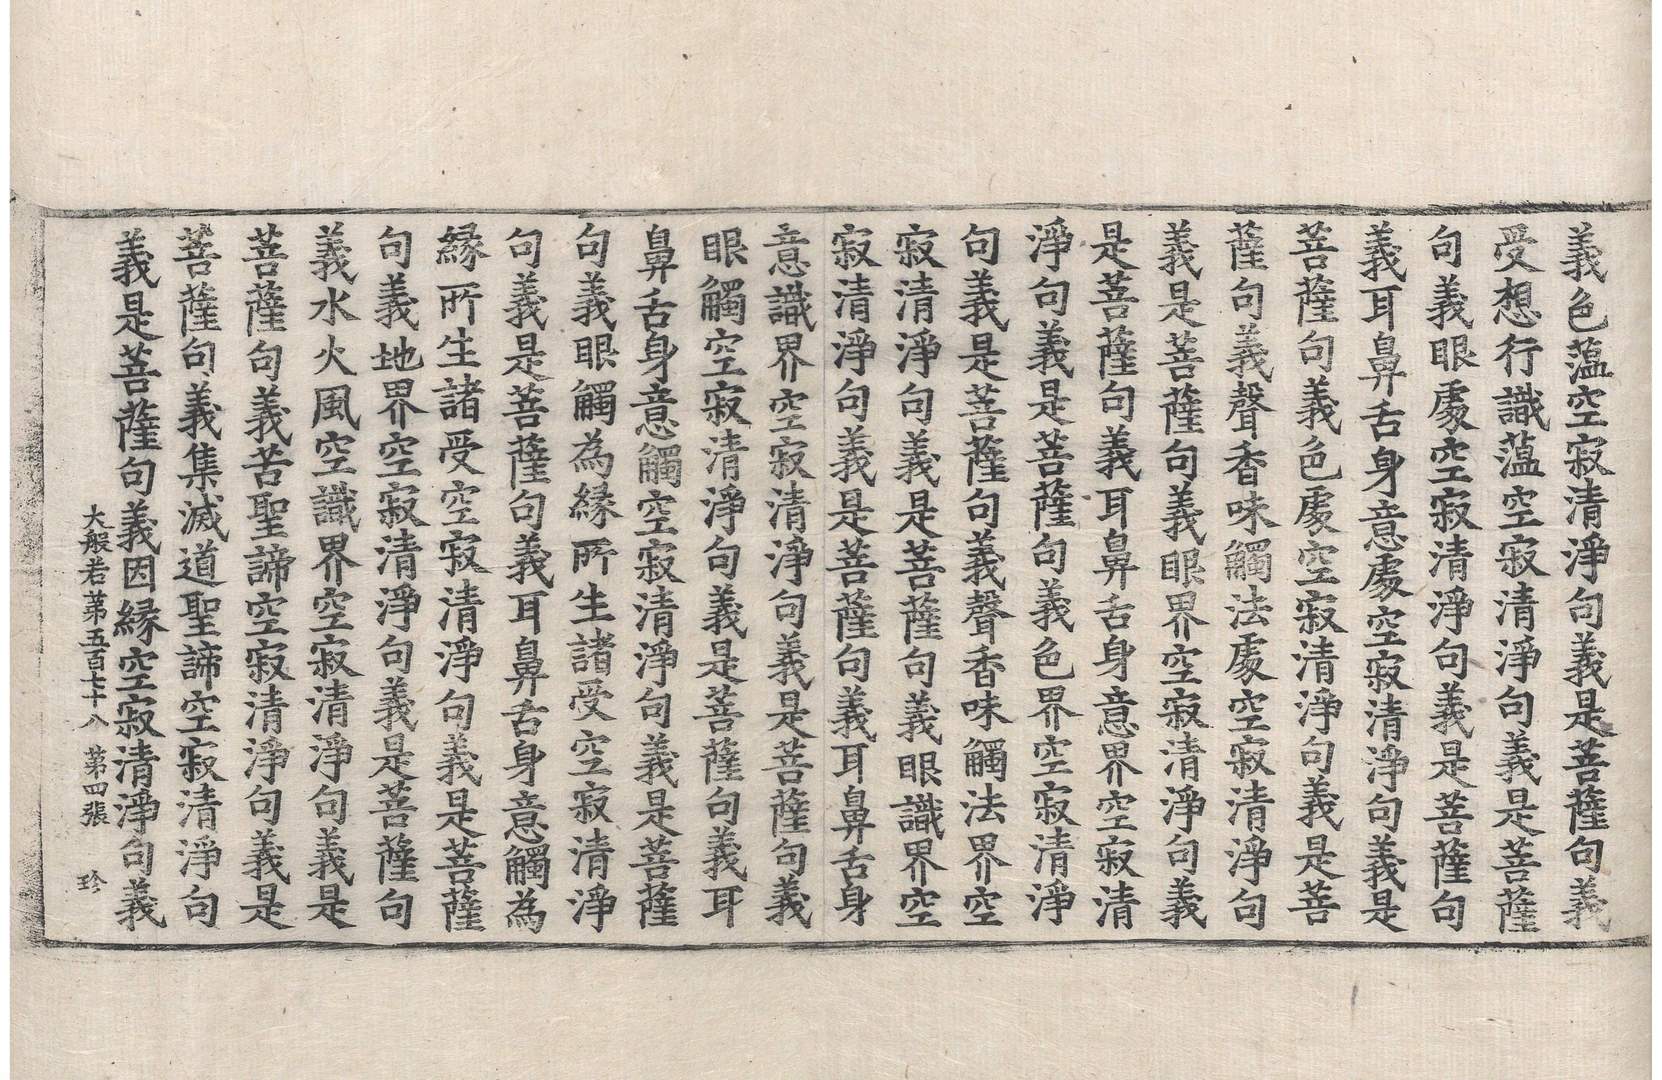 義色薀空寂清淨句義是菩薩句義
受想行識薀空寂清淨句義是菩薩
句義眼處空寂清淨句義是菩薩句
義耳鼻舌身意處空寂清淨句義是
菩薩句義色處空寂清淨句義是菩
薩句義聲香味觸法處空寂清淨句
義是菩薩句義眼界空寂清淨句義
是菩薩句義耳鼻舌身意界空寂清
淨句義是菩薩句義色界空寂清淨
句義是菩薩句義聲香味觸法界空
寂清淨句義是菩薩句義眼識界空
寂清淨句義是菩薩句義耳鼻舌身
意識界空寂清淨句義是菩薩句義
眼觸空寂清淨句義是菩薩句義耳
鼻舌身意觸空寂清淨句義是菩薩
句義眼觸為緣所生諸受空寂清淨
句義是菩薩句義耳鼻舌身意觸為
緣所生諸受空寂清淨句義是菩薩
句義地界空寂清淨句義是菩薩句
義水火風空識界空寂清淨句義是
菩薩句義苦聖諦空寂清淨句義是
菩薩句義集滅道聖諦空寂清淨句
義是菩薩句義因緣空寂清淨句義
大般若第五百七十八 第四張 珍